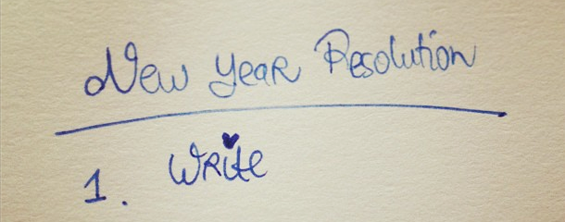 New Year Resolution
1. Write